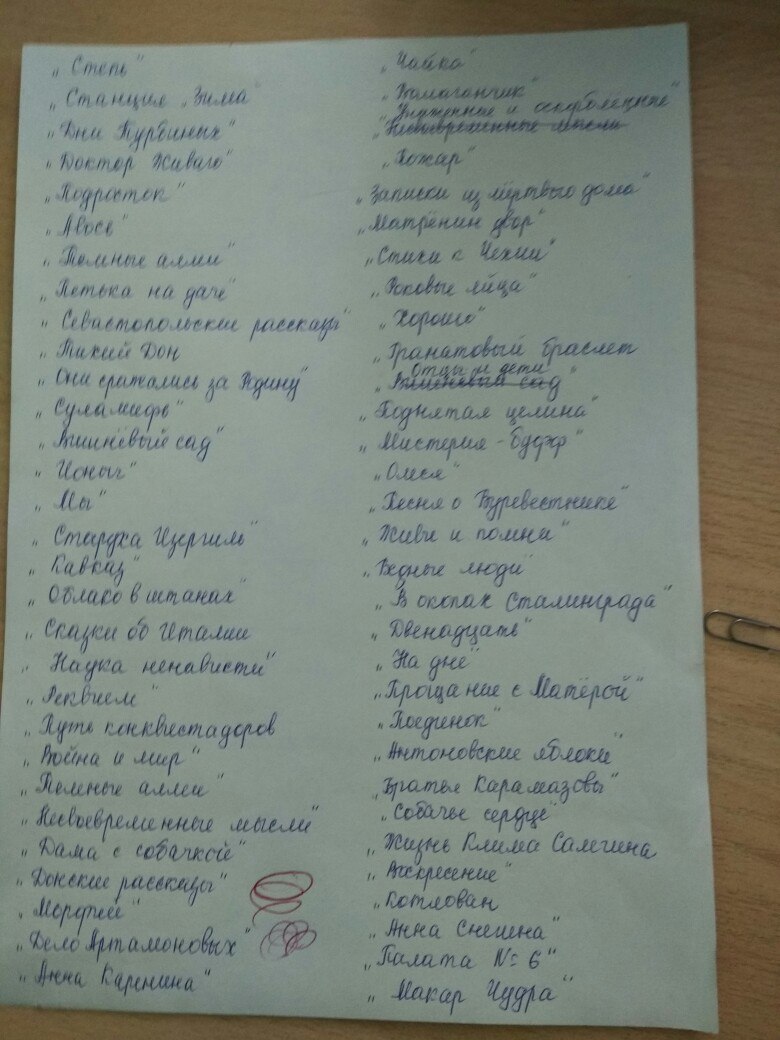 „Степь"
„Станция „Зима"
„Дни Турбиных"
„Доктор Живаго"
„Подросток"
„Авось"
„Темные аллеи"
„Петька на даче"
„Севастопольские рассказы"
„Тихий Дон
„Они сражались за Родину"
„Суламифь"
„Вишнёвый сад"
„Ионыч"
„Мы"
„Старуха Изергиль"
„Кавказ"
„Облако в штанах"
„Сказки об Италии
„Наука ненависти"
„Реквием"
„Путь конквистадоров
„Война и мир"
„Темные аллеи"
„Несвоевременные мысли"
„Дама с собачкой"
„Донские рассказы"
„Морфий"
„Дело Артамоновых"
„Анна Каренина"
„Чайка"
„Балаганчик"
Униженные и оскорблённые"
„Несвоевременные мысли
„Пожар"
„Записки из мёртвого дома"
„Матрёнин двор"
„Стихи к Чехии"
„Роковые яйца"
„Хорошо"
„Гранатовый браслет
Отцы и дети
„Вишнёвый сад"
„Поднятая целина"
„Мистерия-буфф"
„Олеся"
„Песня о Буревестнике"
„Живи и помни"
„Бедные люди"
„В окопах Сталинграда"
„Двенадцать"
„На дне"
„Прощание с Матёрой"
„Поединок"
„Антоновские яблоки"
„Братья Карамазовы"
„Собачье сердце"
„Жизнь Клима Самгина
„Воскресение"
„Котлован
„Анна Снегина"
„Палата № 6"
„Макар Чудра"